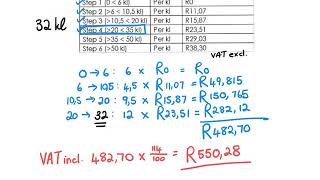 Step 1 (0 < 6 kl) Per kl R0
Step 2 (>6 < 10,5 kl) Per kl R11,07
Step 3 (>10,5 < 20 kl) Per kl R15,87
Step 4 (>20 < 35 kl) Per kl R23,51
Step 5 (>35 < 50 kl) Per kl R29,03
Step 6 (>50 kl) Per kl R38,30
32 kl
VAT excl.
0 → 6 : 6 × R0 = R0
6 → 10,5 : 4,5 × R11,07 = R49,815
10,5 → 20 : 9,5 × R15,87 = R150,765
20 → 32 : 12 × R23,51 = R282,12
R482,70
VAT incl. 482,70 × 114/100 = R550,28